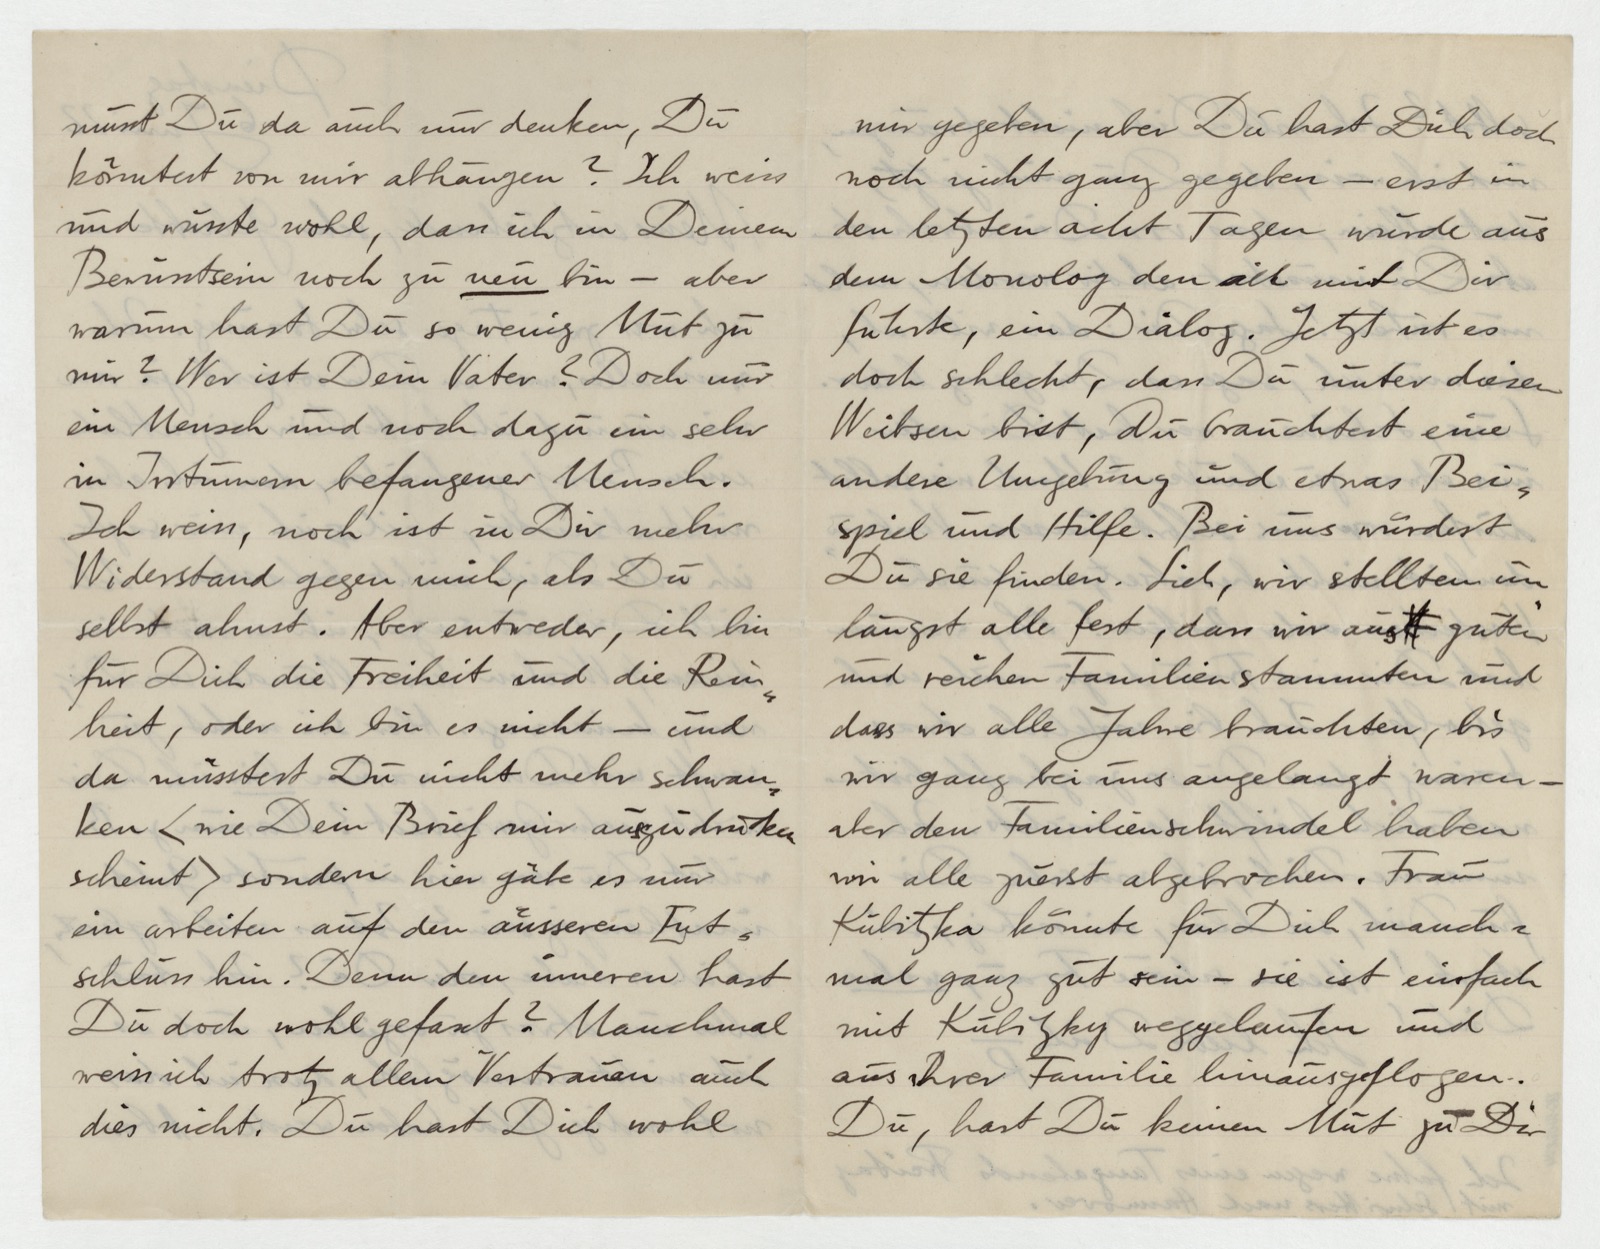 musst Du da auch nur denken, Du
könntest von mir abhängen? Ich weiss
und wusste wohl, dass ich in Deinem
Bewusstsein noch zu neu bin – aber
warum hast Du so wenig Mut zu
mir? Wer ist Dein Vater? Doch nur
ein Mensch und noch dazu ein sehr
in Irrtümern befangener Mensch.
Ich weiss, noch ist in Dir mehr
Widerstand gegen mich, als Du
selbst ahnst. Aber entweder, ich bin
für Dich die Freiheit und die Rein=
heit, oder ich bin es nicht – und
da müsstest Du nicht mehr schwan=
ken <wie Dein Brief mir auszudrücken
scheint> sondern hier gäbe es nur
ein arbeiten auf den äusseren Ent=
schluss hin. Denn den inneren hast
Du doch wohl gefasst? Manchmal
weiss ich trotz allem Vertrauen auch
dies nicht. Du hast Dich wohl
mir gegeben, aber Du hast Dich doch
noch nicht ganz gegeben – erst in
den letzten acht Tagen wurde aus
dem Monolog den ich mit Dir
führte, ein Dialog. Jetzt ist es
doch schlecht, dass Du unter diesen
Weibsen bist, Du brauchtest eine
andere Umgebung und etwas Bei=
spiel und Hilfe. Bei uns würdest
Du sie finden. Sieh, wir stellten un
längst alle fest, dass wir aus guten
und reichen Familien stammten und
dass wir alle Jahre brauchten, bis
wir ganz bei uns angelangt waren –
aber den Familienschwindel haben
wir alle zuerst abgebrochen. Frau
Kubitzka könnte für Dich manch=
mal ganz gut sein – sie ist einfach
mit Kubitzky weggelaufen und
aus ihrer Familie hinausgeflogen.
Du, hast Du keinen Mut zu Dir